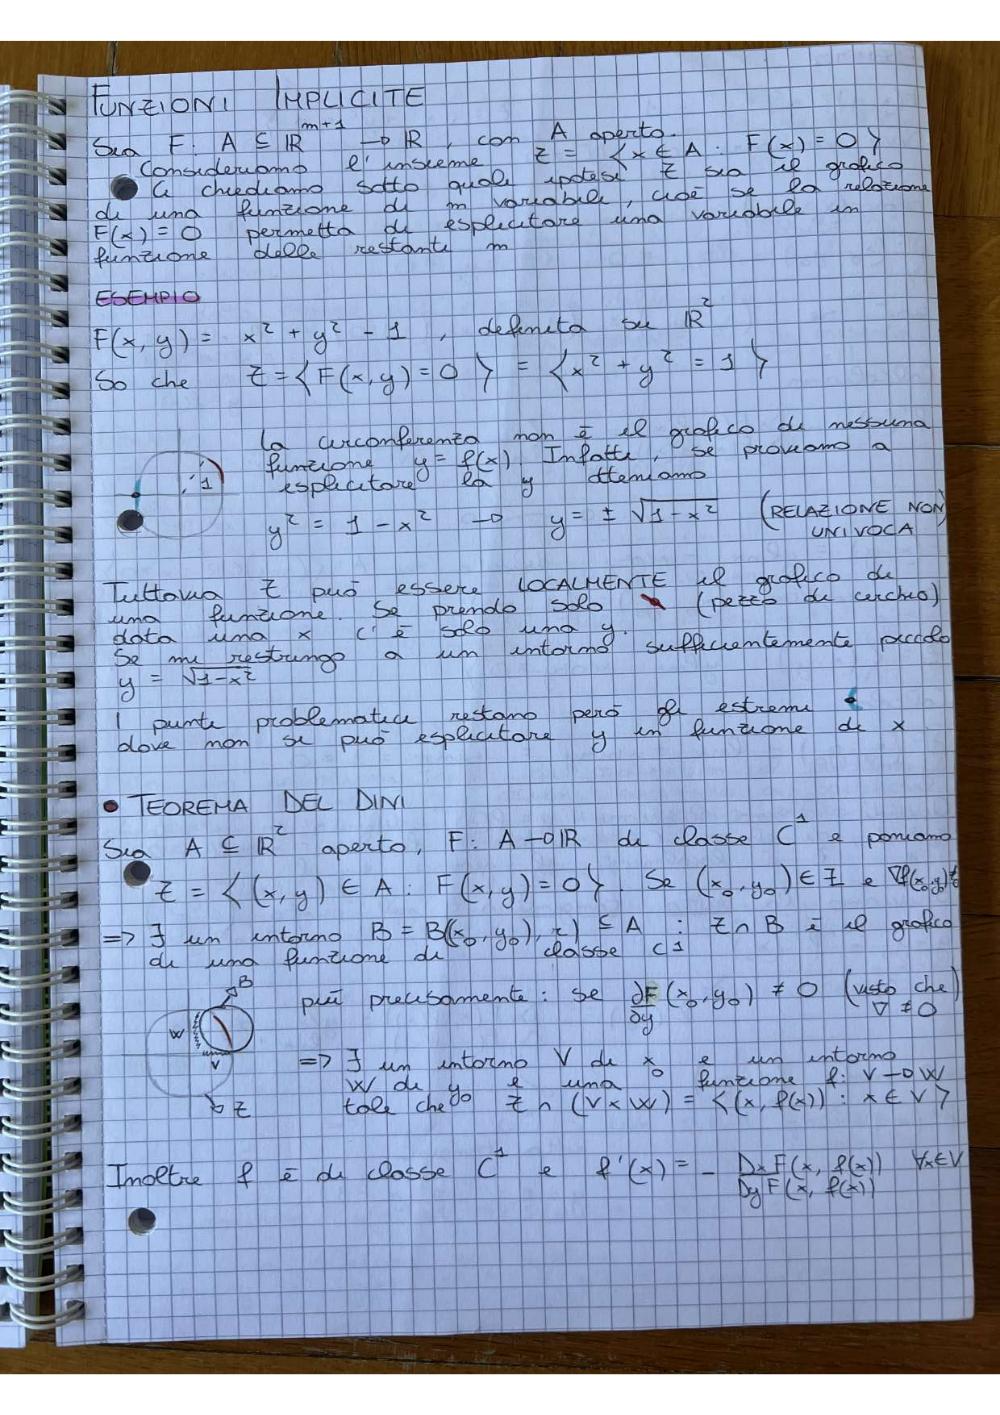 FUNZIONI IMPLICITE
Sia F: A ⊆ ℝ^{m+1} → ℝ, con A aperto.
Consideriamo l'insieme Z = {x ∈ A : F(x) = 0}
Ci chiediamo sotto quali ipotesi Z sia il grafico
di una funzione di m variabili, cioè se la relazione
F(x) = 0 permetta di esplicitare una variabile in
funzione delle restanti m
ESEMPIO
F(x, y) = x² + y² - 1 , definita su ℝ²
So che Z = {F(x, y) = 0} = {x² + y² = 1}
La circonferenza non è il grafico di nessuna
funzione y = f(x). Infatti, se proviamo a
esplicitare la y otteniamo
1
y² = 1 - x² → y = ± √1-x² (RELAZIONE NON
UNIVOCA)
Tuttavia Z può essere LOCALMENTE il grafico di
una funzione. Se prendo solo (pezzo di cerchio)
data una x c'è solo una y.
Se mi restringo a un intorno sufficientemente piccolo
y = √1-x²
I punti problematici restano però gli estremi
dove non si può esplicitare y in funzione di x
• TEOREMA DEL DINI
Sia A ⊆ ℝ² aperto, F: A → ℝ di classe C¹ e poniamo
Z = {(x, y) ∈ A : F(x, y) = 0}. Se (x₀, y₀) ∈ Z e ∇f(x₀,y₀)≠
=> ∃ un intorno B = B((x₀, y₀), r) ⊆ A : Z ∩ B è il grafico
di una funzione di classe C¹
B
W
V
Z
più precisamente: se ∂F/∂y (x₀, y₀) ≠ 0 (visto che
∇ ≠ 0)
=> ∃ un intorno V di x₀ e un intorno
W di y₀ e una funzione f: V → W
tale che Z ∩ (V×W) = {(x, f(x)) : x ∈ V}
Inoltre f è di classe C¹ e f'(x) = - DxF(x, f(x)) ∀x∈V
DyF(x, f(x))